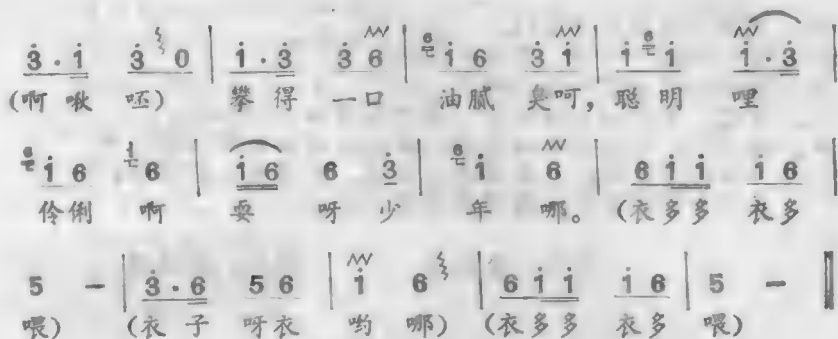 3̇ · 1̇ 3̇ 0 | 1̇ · 3̇ 3̇ 6 | 6 1̇ 6 3̇ 1̇ | 1̇ 6 1̇ 1̇ · 3̇ |
(啊 啾 呸) 攀 得 一 口 油 腻 臭 呵, 聪 明 哩
6 1̇ 6 1̇ 6 | 1̇ 6 6 3̇ | 6 1̇ 6 | 6 1̇ 1̇ 1̇ 6 |
伶 俐 啊 耍 呀 少 年 哪。 (衣 多 多 衣 多
5 – | 3̇ · 6 5 6 | 1̇ 6 | 6 1̇ 1̇ 1̇ 6 | 5 – ‖
喂) (衣 子 呀 衣 哟 哪) (衣 多 多 衣 多 喂)